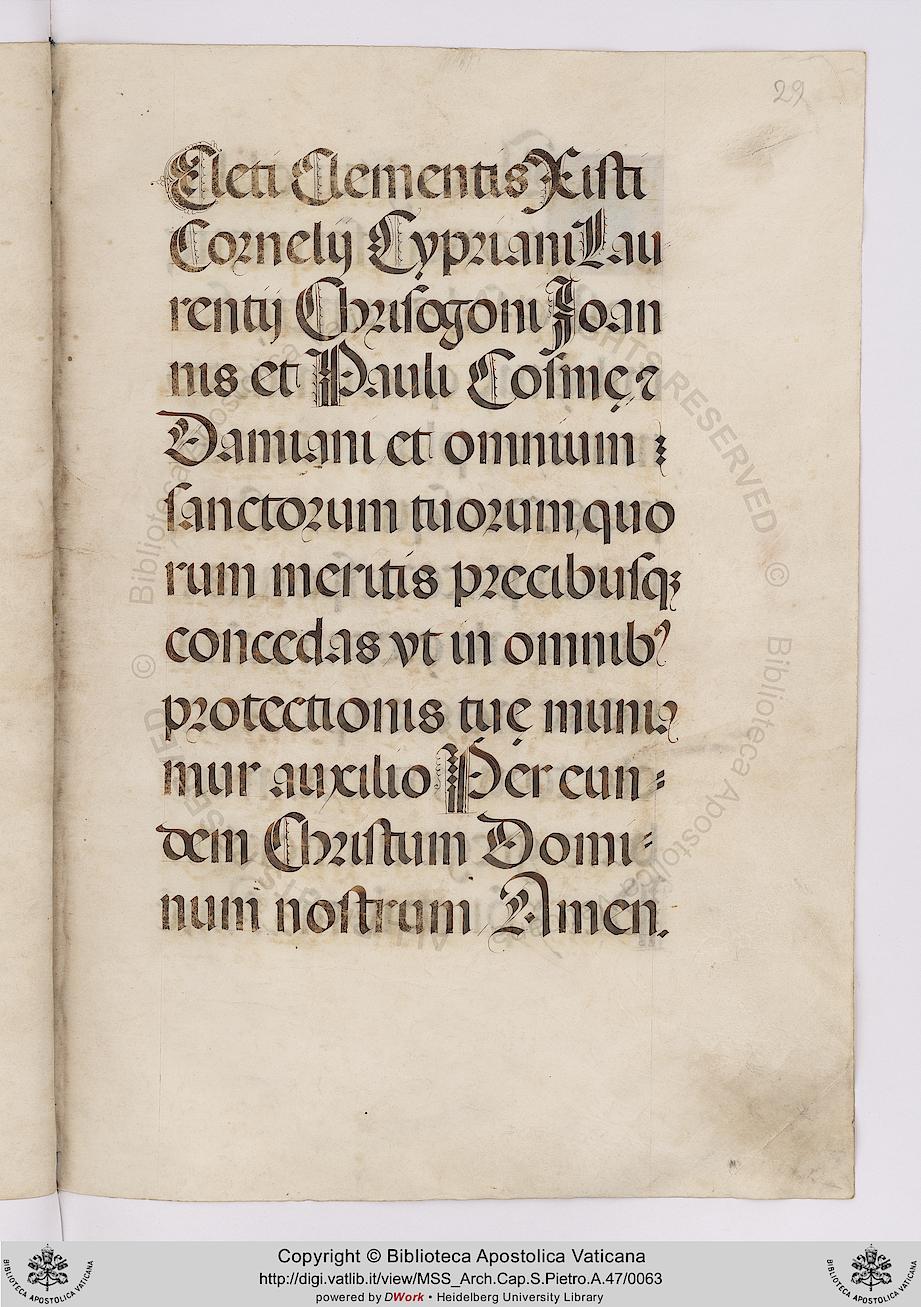 29
Cleti Clementis Xisti
Cornelij Cypriani Lau
rentij Chrisogoni Joan
nis et Pauli Cosmę ⁊
Damiani et omnium :
sanctorum tuorum, quo
rum meritis precibusqꝫ
concedas vt in omnibꝰ
protectionis tuę munia
mur auxilio Per eun⸗
dem Christum Domi⸗
num nostrum Amen.
Copyright © Biblioteca Apostolica Vaticana
http://digi.vatlib.it/view/MSS_Arch.Cap.S.Pietro.A.47/0063
powered by DWork • Heidelberg University Library
BIBLIOTECA APOSTOLICA VATICANA
BIBLIOTECA APOSTOLICA VATICANA